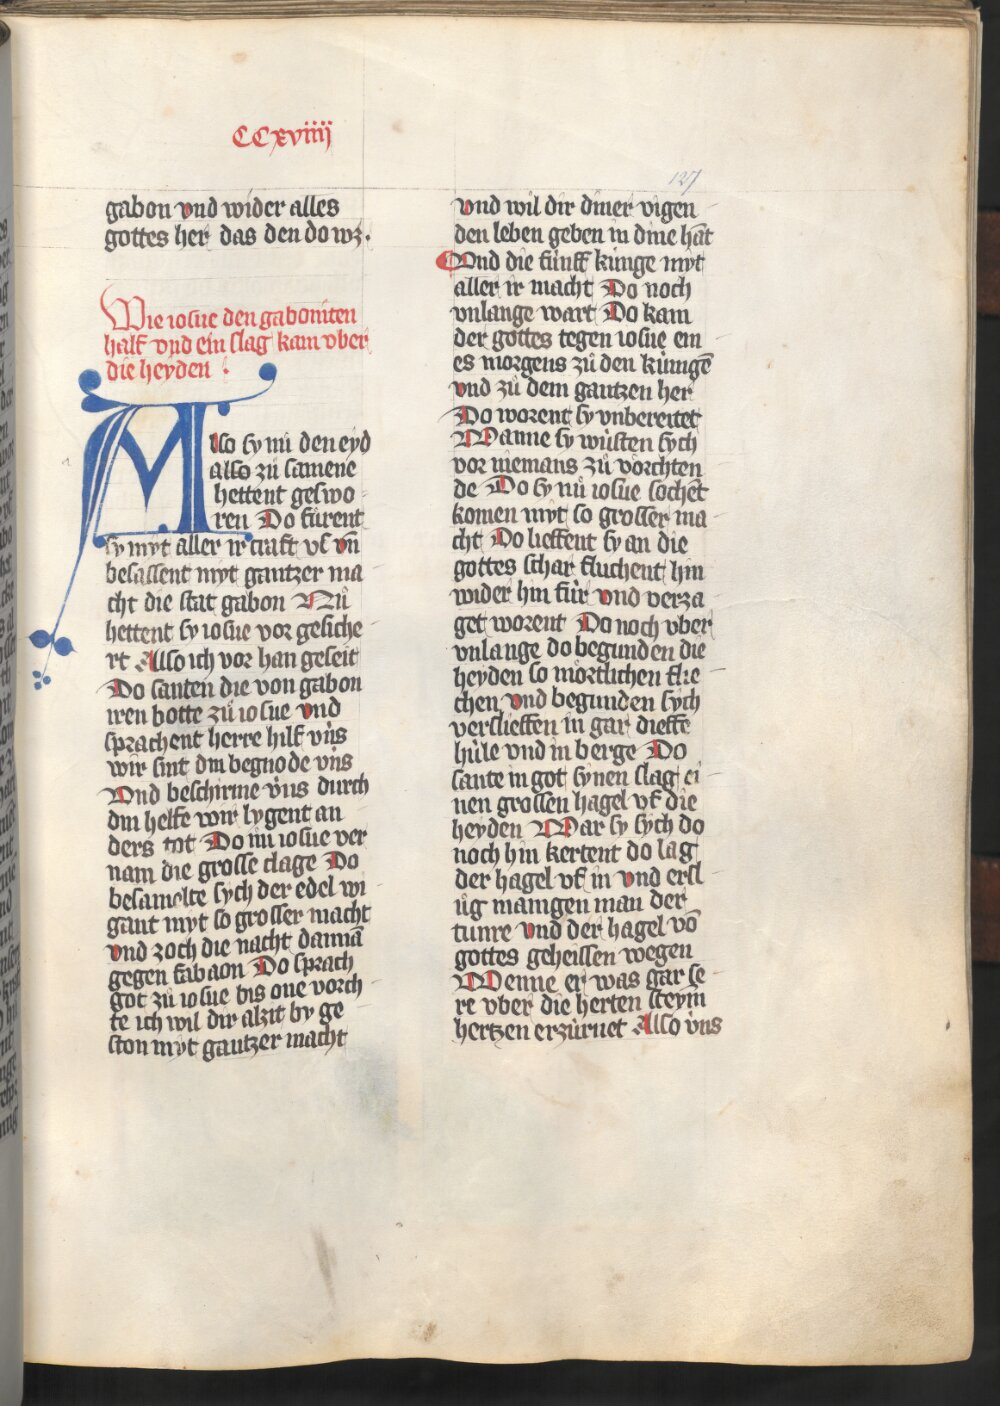 CCxviiij
127
gabon vnd wider alles
gottes her das den do wz.
Wie iosue den gaboniten
half vnd ein slag kam vber
die heyden :
Also sy nu den eyd
also zů samene
hettent geswo
ren Do fůrent
sy myt aller ir craft vf vn̄
besassent myt gantzer ma
cht die stat gabon Nů
hettent sy iosue vor gesiche
rt Also ich vor han geseit
Do santen die von gabon
iren botte zů iosue vnd
sprachent herre hilf vns
wir sint din begnode vns
Vnd beschirme vns durch
din helfe wir lygent an
ders tot Do nu iosue ver
nam die grosse clage Do
besamelte sych der edel wi
gant myt so grosser macht
vnd zoch die nacht damā
gegen sabaon Do sprach
got zů iosue bis one vorch
te ich wil dir alzit by ge
ston myt gantzer macht
vnd wil dir diner vigen
den leben geben in dine hāt
Vnd die fünff kunge myt
aller ir macht Do noch
vnlange wart Do kam
der gottes tegen iosue ein
es morgens zů den kungē
vnd zů dem gantzen her
Do worent sy vnbereitet
Wanne sy wůsten sych
vor niemans zů vörchten
de Do sy nů iosue sochēt
komen myt so grosser ma
cht Do lieffent sy an die
gottes schar fluchent hin
wider hin für vnd verza
get worent Do noch vber
vnlange do begunden die
heyden so mörtlichen flie
chen vnd begunden sych
verslieffen in gar dieffe
hüle vnd in berge Do
sante in got synen slag ei
nen grossen hagel vf die
heyden War sy sych do
noch hin kertent do lag
der hagel vf in vnd ersl
ůg manigen man der
tunre vnd der hagel vō
gottes geheissen wegen
Wenne er was gar se
re vber die herten steyin
hertzen erzürnet Also vns